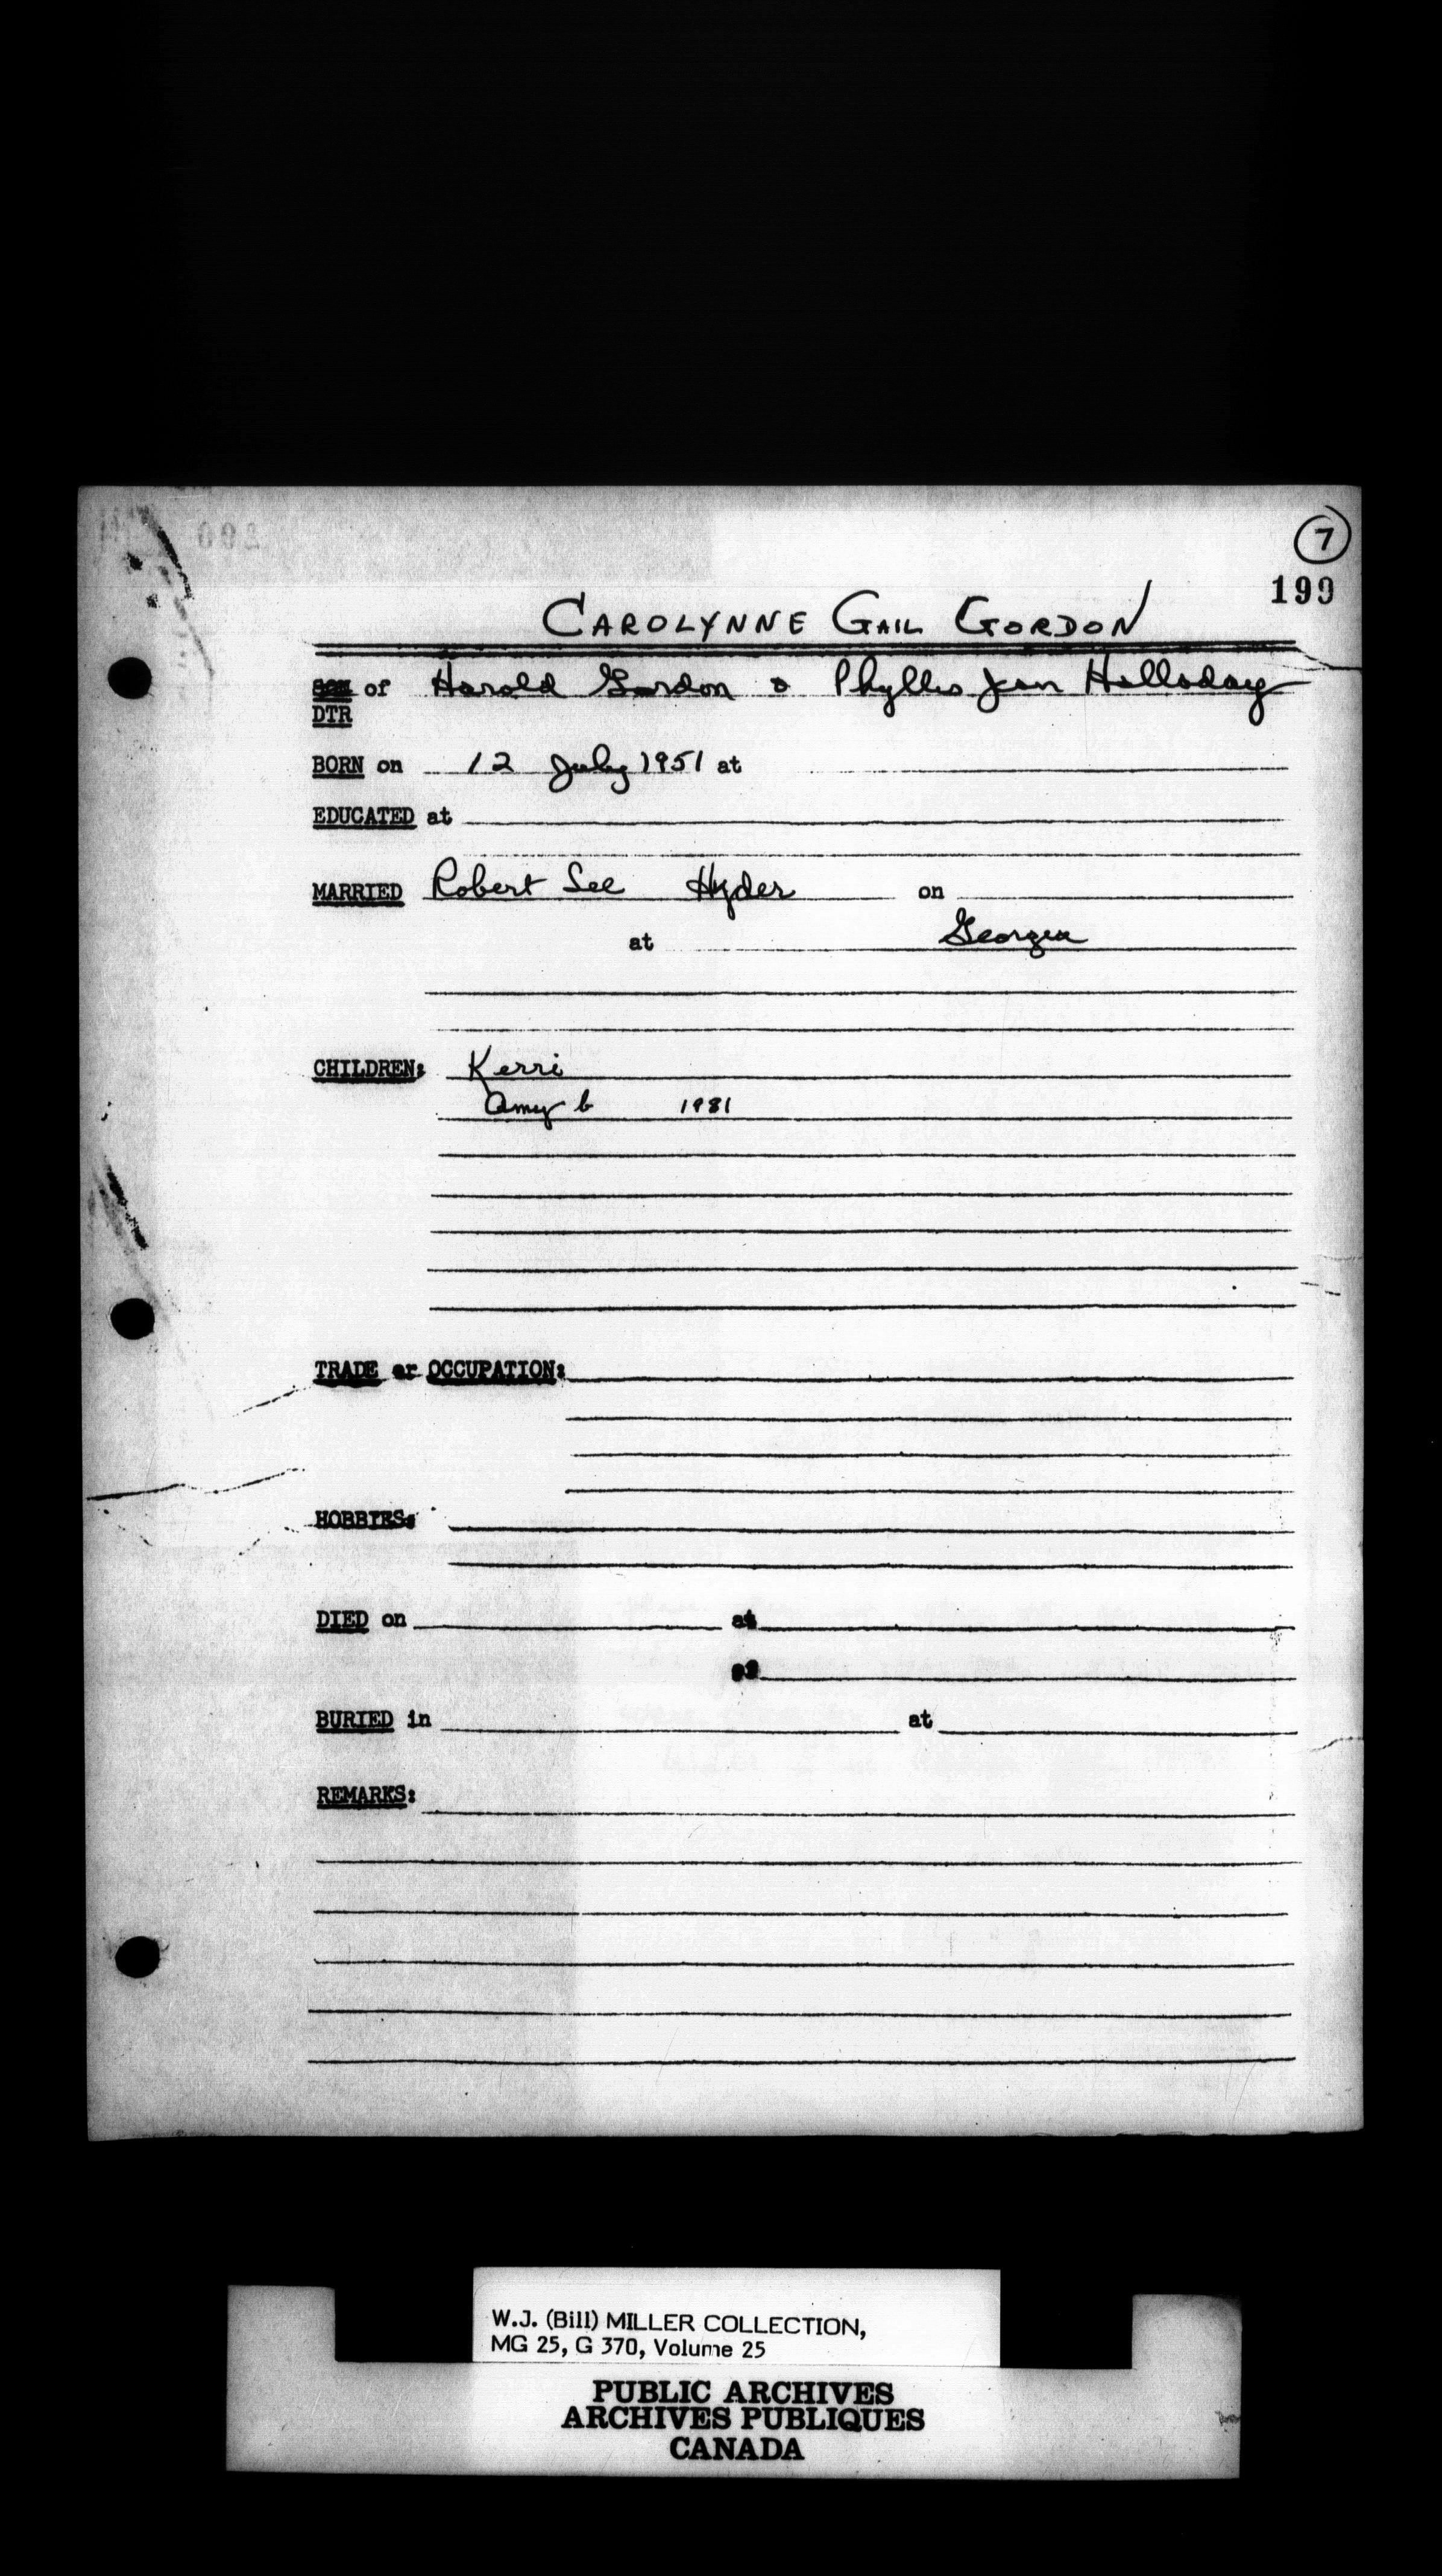 7
199
CAROLYNNE GAIL GORDON
SON of Harold Gordon & Phyllis Jean Halladay
DTR
BORN on 12 July 1951 at
EDUCATED at
MARRIED Robert Lee Hyder on
at Georgia
CHILDREN: Kerri
Amy b 1981
TRADE or OCCUPATION:
HOBBIES:
DIED on at
of
BURIED in at
REMARKS:
W.J. (Bill) MILLER COLLECTION,
MG 25, G 370, Volume 25
PUBLIC ARCHIVES
ARCHIVES PUBLIQUES
CANADA